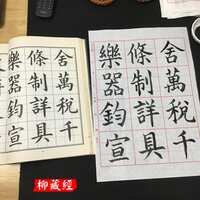 舍萬稅千
條制詳具
樂器鈞宣
舍萬稅千
條制詳具
樂器鈞宣
柳藏經